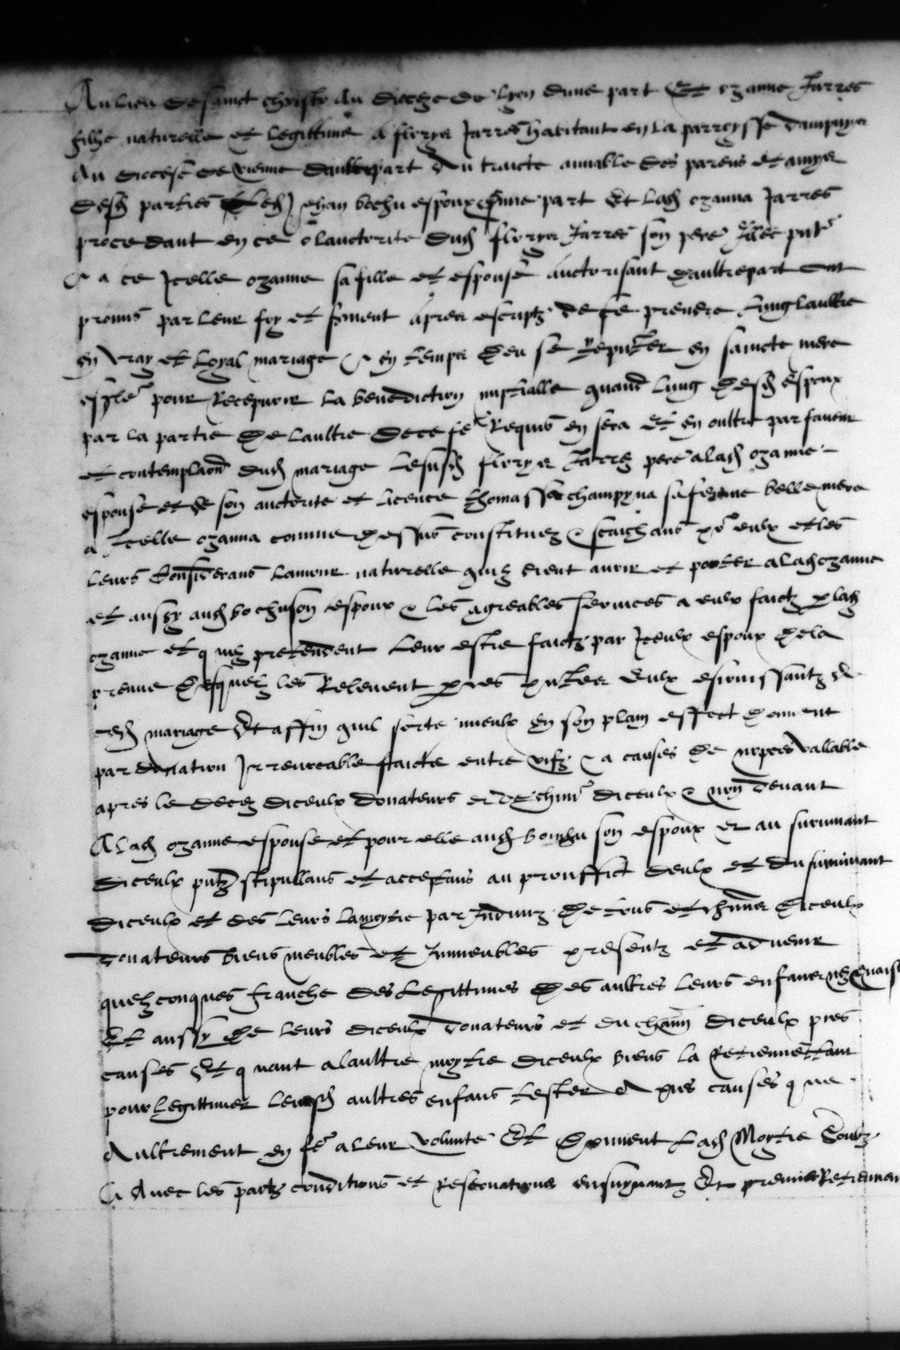 Au lieu de sainct christo au diocese de lyon dune part Et ozanne Jarres
fille naturelle et legittime a floryn Jarres habitant en la parroysse dampuys
Au diocese de vienne daultrepart Au traicte amiable des parens et amys
desd parties Led Jehan bochu espoux dune part Et lad ozanna Jarres
procedant en ce o lauctorite dud floryn Jarres son pere Illec put
& a ce Icelle ozanne sa fille et espouse auctorisant daultrepart ont
promis par leur foy et sment apres escriptz de se prendre lung laultre
en vray et loyal mariage & en temps deu se reputer en saincte mere
esgle pour Recepvoir la benediction nuptialle quand lung desd espoux
par la partie de laultre de ce fe Requis en sera Et en oultre par faveur
et contemplaon dud mariage Lesusd floryn Jarres pere a lad ozanne
espouse et de son auctorite et licence thomassa champyna sa femme belle mere
a Icelle ozanna comme dessus constituez & scaichans eulx et les
leurs Considerans lamour naturelle quilz dient avoir et porter a lad ozanne
et aussy aud bochu son espoux & les agreables services a eulx faictz lad
ozanne et quilz pretendent leur estre faictz par Iceulx espoux de la
preuve desquelz les Relevent eulx esiouissantz de
ced mariage Et affin quil sorte mieulx en son plain effect donnent
par donation Irrevocable faicte entre vifz & a causes de nopces vallable
apres le decez diceulx donateurs diceulx & non devant
A lad ozanne espouse et pour elle aud bochu son espoux et au survivant
diceulx putz stipullans et acceptans au prouffict deulx et du survivant
diceulx et des leurs la moytie par Indiviz de tous et chuns diceulx
donateurs biens meubles et Immeubles presentz et advenir
quelzconques franche des legittimes des aultres leurs enfans
Et aussy de leurs diceulx donateurs et du chaun diceulx pres
causes Et quant a laultre moytie diceulx biens la Retiennent
pour legittimer leursd aultres enfans tester causes que
Aultrement en fe a leur volunte Et donnent lad Moytie
Avec les pactz conditions et Reservations ensuyvantz Et premier Retiennent